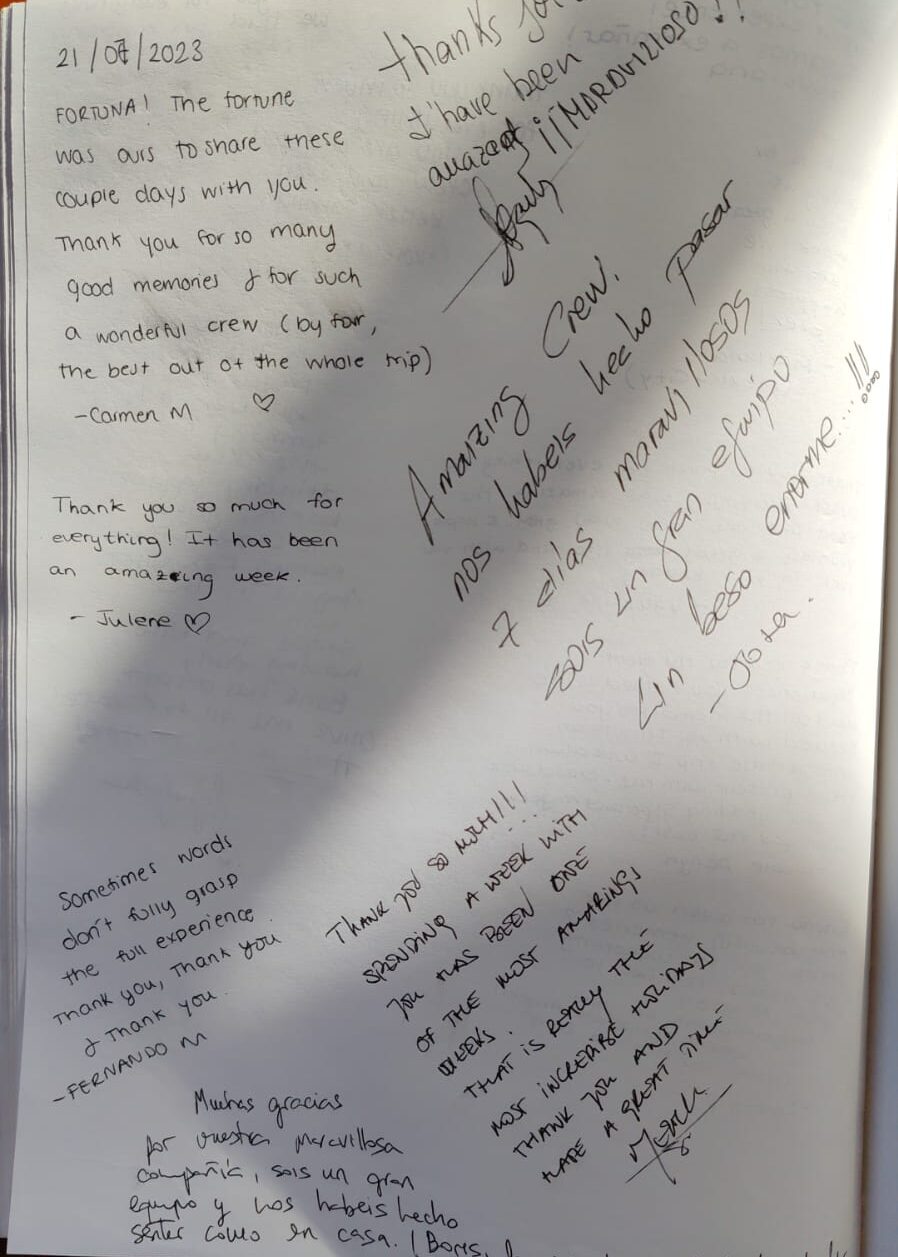 21/07/2023
FORTUNA! The fortune
was ours to share these
couple days with you.
Thank you for so many
good memories & for such
a wonderful crew (by far,
the best out of the whole trip)
-Carmen M ♡
Thank you so much for
everything! It has been
an amazing week.
- Julene ♡
thanks for
I have been
¡¡MARAVIZIOSO!!
Amaizing Crew.
nos habeis hecho pasar
7 días maravillosos
sois un gran equipo
un beso enorme...!!!
-Jota.
Sometimes words
don't fully grasp
the full experience.
Thank you, Thank you
& Thank you.
-FERNANDO M
THANK YOU SO MUCH!!!
SPENDING A WEEK WITH
YOU HAS BEEN ONE
OF THE MOST AMARINGS
WEEKS.
THAT IS REALLY THE
MOST INCREIBLE HOLIDAYS
THANK YOU AND
HAVE A GREAT TIME
Muchas gracias
por vuestra maravillosa
compañía, sois un gran
equipo y nos habeis hecho
sentir como en casa. (Boris,